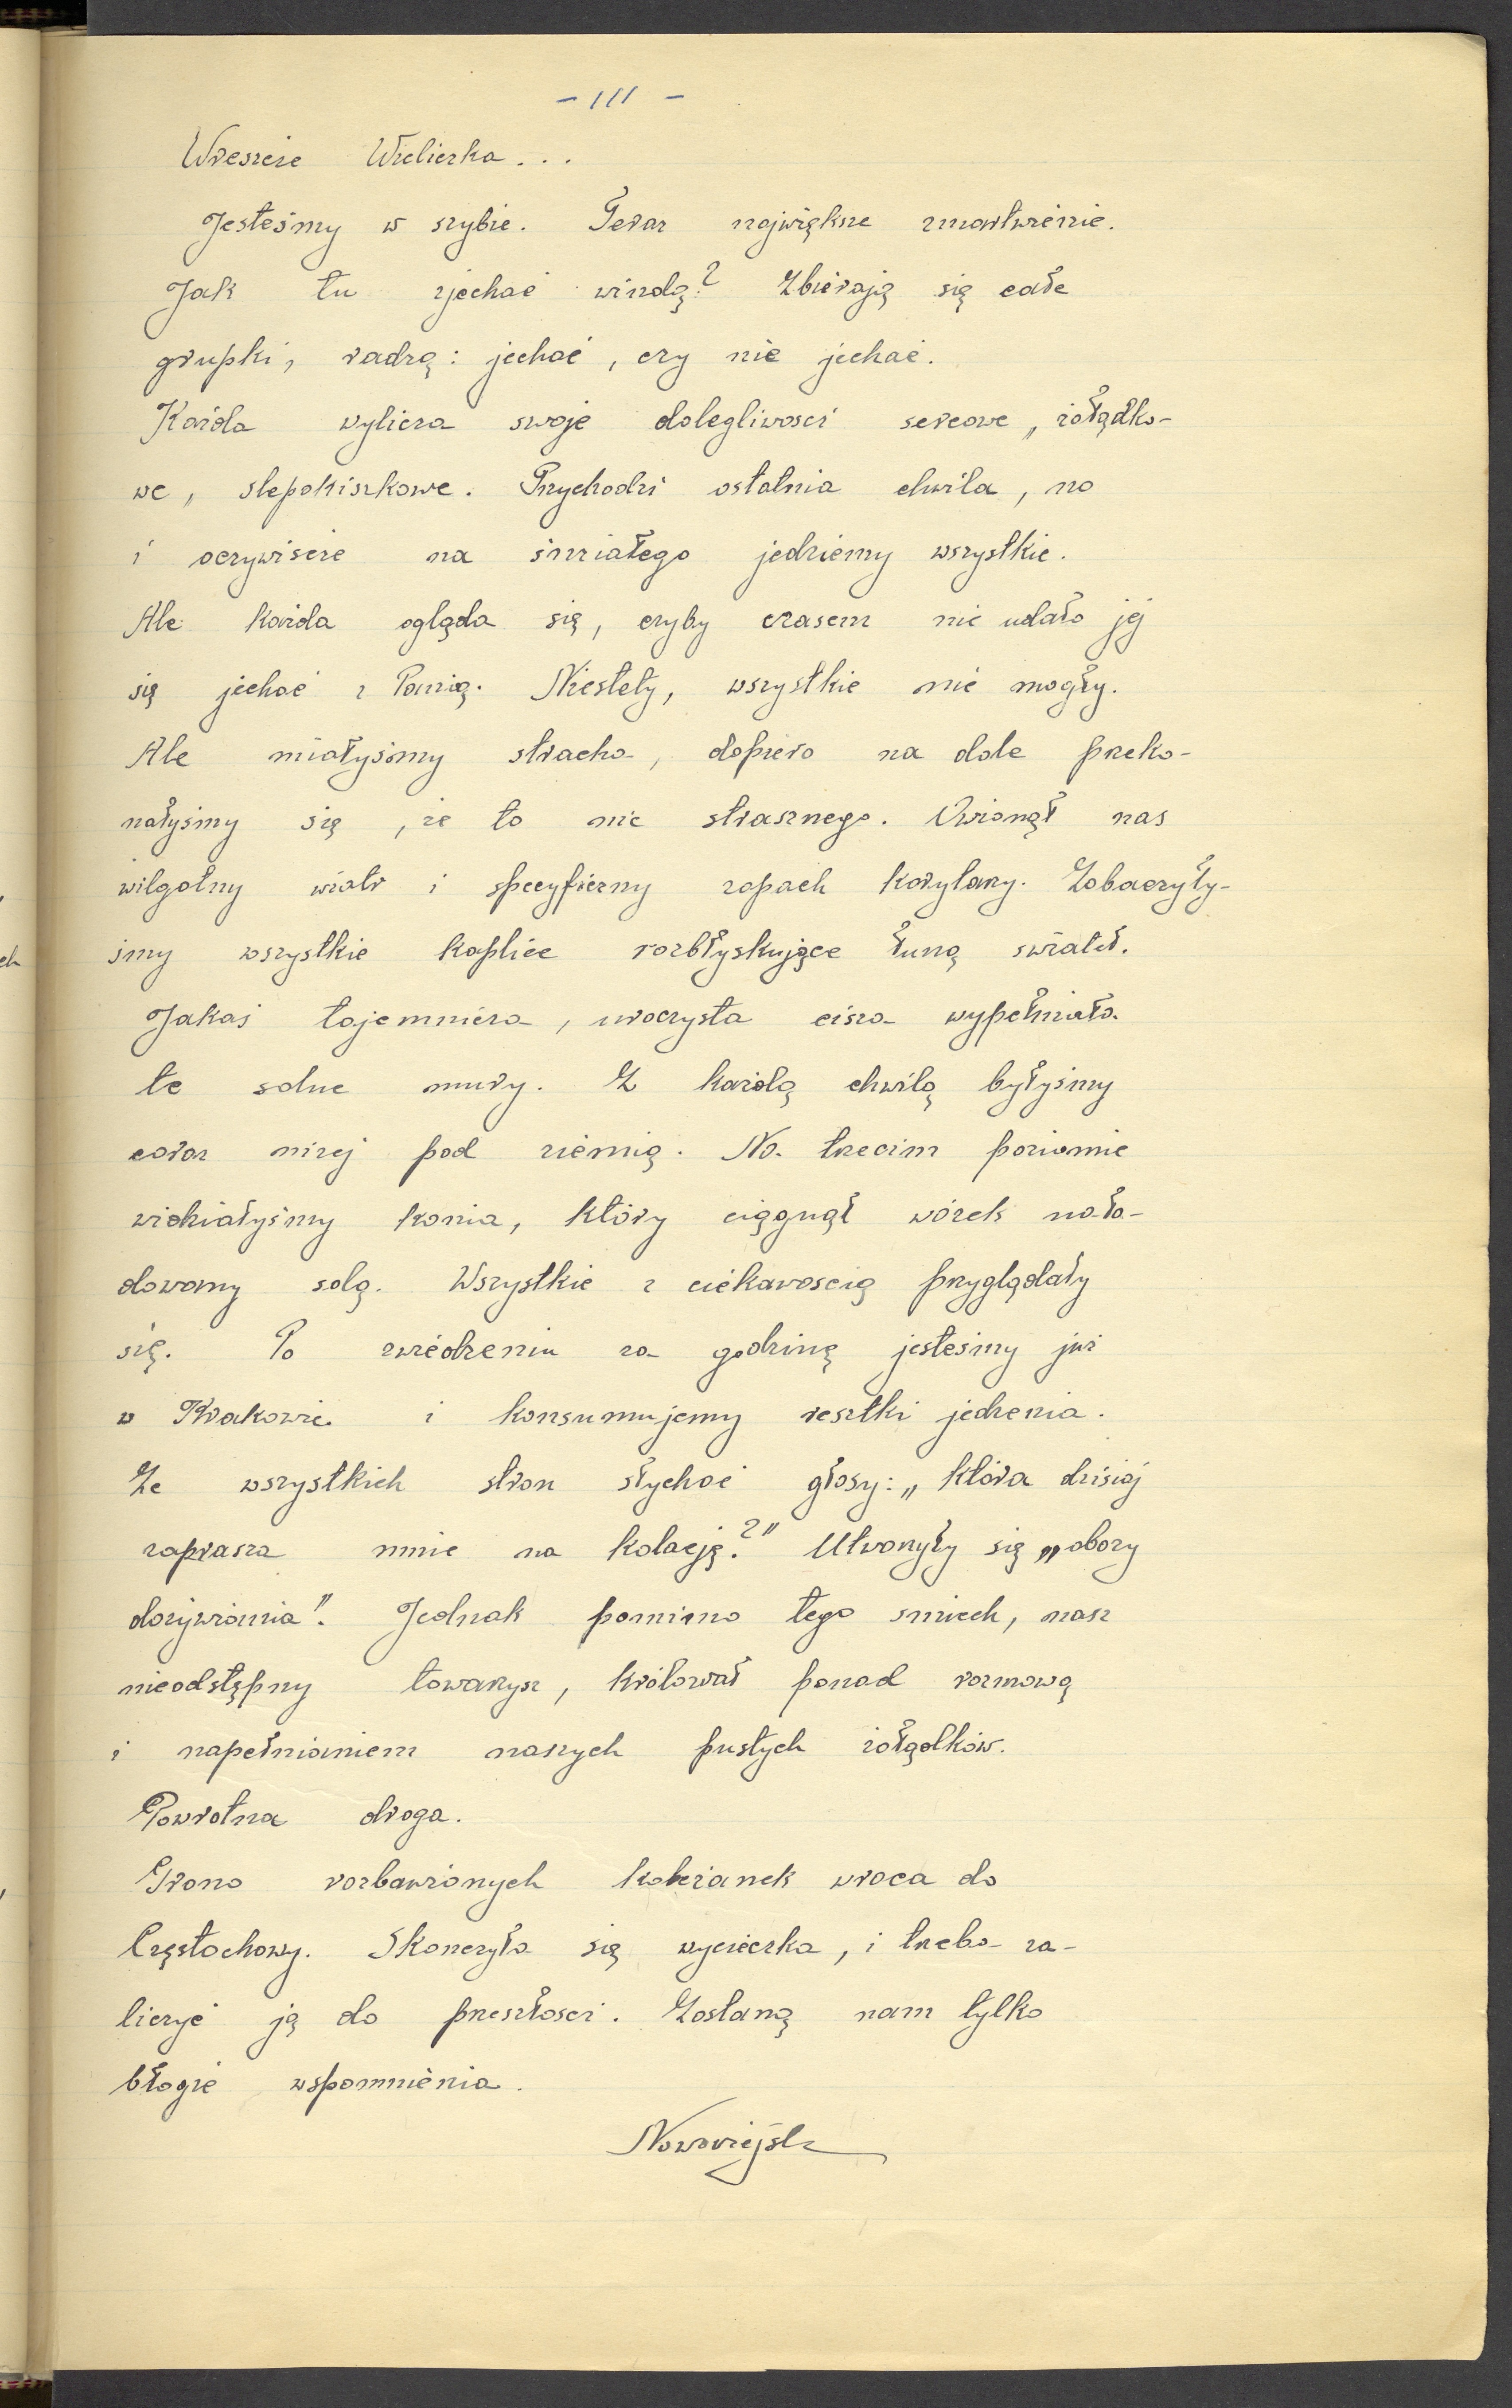 - 111 -
Wreszcie Wieliczka...
Jesteśmy w szybie. Teraz największe zmartwienie.
Jak tu zjechać windą? Zbierają się całe
grupki, radzą: jechać, czy nie jechać.
Każda wylicza swoje dolegliwości sercowe, żołądko-
we, ślepokiszkowe. Przychodzi ostatnia chwila, no
i oczywiście na śmiałego jedziemy wszystkie.
Ale każda ogląda się, czyby czasem nie udało jej
się jechać z Panią. Niestety, wszystkie nie mogły.
Ale miałyśmy stracha, dopiero na dole przeko-
nałyśmy się, że to nic strasznego. Owionął nas
wilgotny wiatr i specyficzny zapach korytarzy. Zobaczyły-
śmy wszystkie kaplice rozbłyskujące łuną świateł.
Jakaś tajemnicza, uroczysta cisza wypełniała
te solne mury. Z każdą chwilą byłyśmy
coraz niżej pod ziemią. Na trzecim poziomie
widziałyśmy konia, który ciągnął wózek nała-
dowany solą. Wszystkie z ciekawością przyglądały
się. Po zwiedzeniu za godzinę jesteśmy już
w Krakowie i konsumujemy resztki jedzenia.
Ze wszystkich stron słychać głosy: „która dzisiaj
zaprasza mnie na kolację?" Utworzyły się „obozy
dożywiania". Jednak pomimo tego śmiech, nasz
nieodstępny towarzysz, królował ponad rozmową
i napełnianiem naszych pustych żołądków.
Powrotna droga.
Grono rozbawionych koleżanek wraca do
Częstochowy. Skończyła się wycieczka, i trzeba za-
liczyć ją do przeszłości. Zostaną nam tylko
błogie wspomnienia.